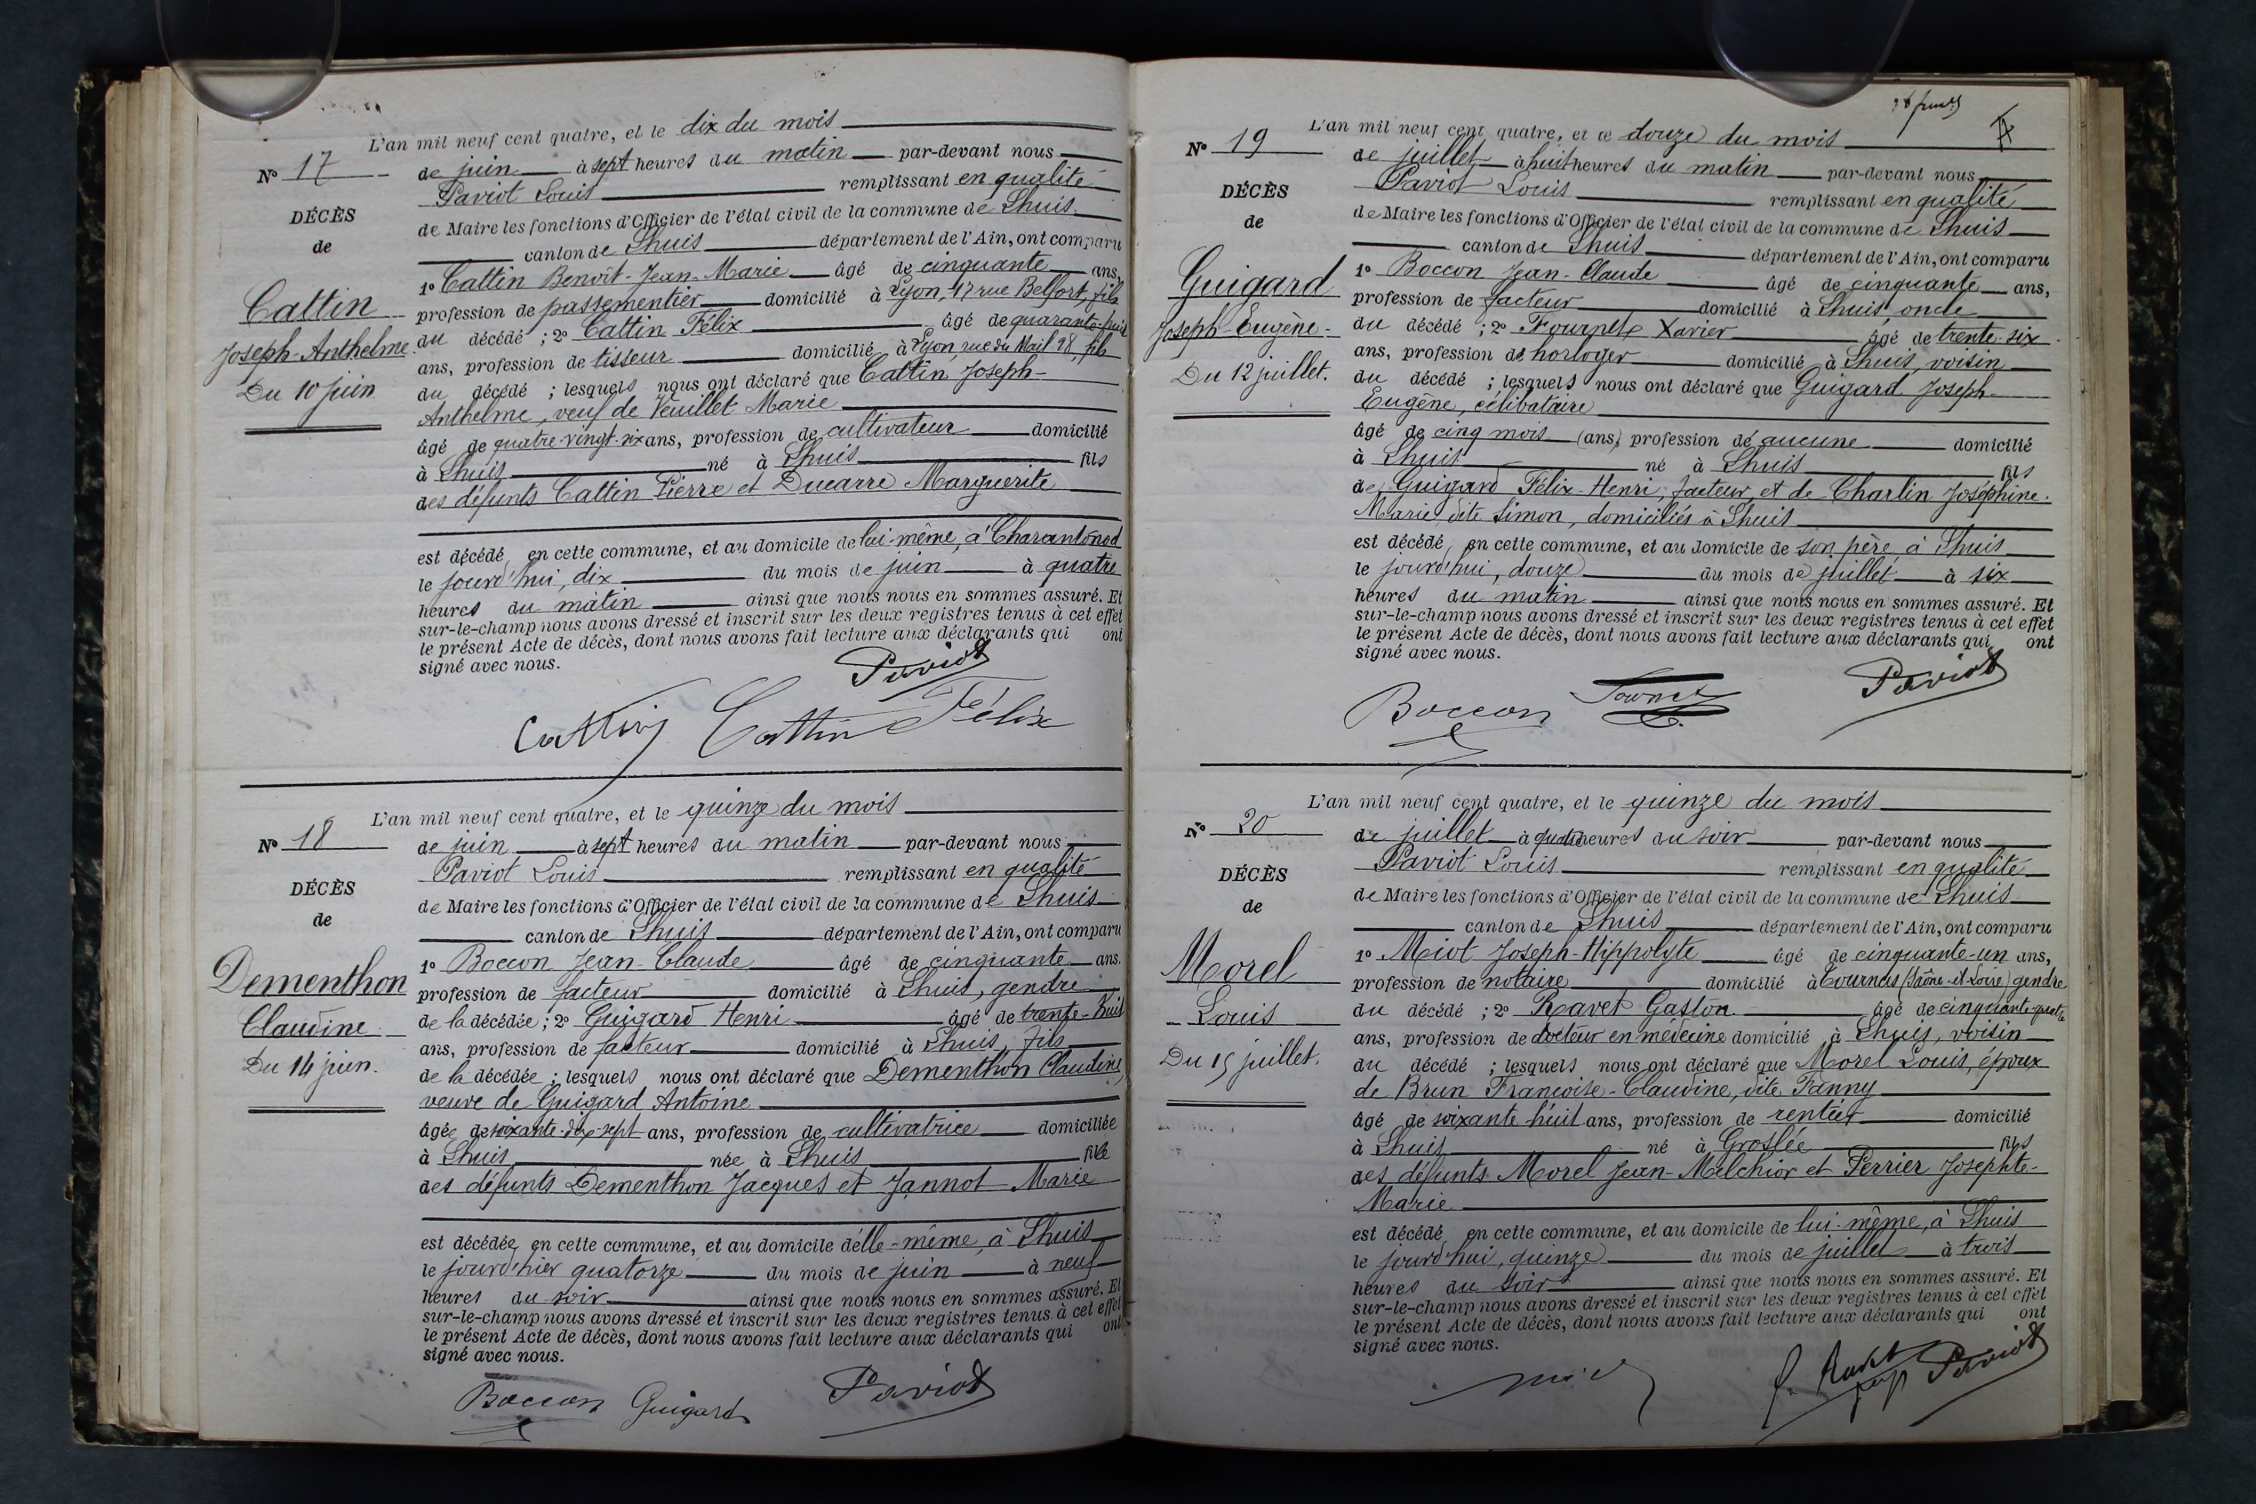 L'an mil neuf cent quatre, et le dix du mois
N° 17
de juin à sept heures du matin par-devant nous
Paviot Louis remplissant en qualité
DÉCÈS
de Maire les fonctions d'Officier de l'état civil de la commune de Lhuis
de
canton de Lhuis département de l'Ain, ont comparu
1° Cattin Benoît-Jean-Marie âgé de cinquante ans,
Cattin
profession de passementier domicilié à Lyon, 17 rue Belfort, fils
Joseph-Anthelme.
du décédé ; 2° Cattin Félix âgé de quarante-huit
ans, profession de tisseur domicilié à Lyon, rue du Mail 28, fils
Du 10 juin
du décédé ; lesquels nous ont déclaré que Cattin Joseph-
Anthelme, veuf de Veuillet Marie
âgé de quatre-vingt-six ans, profession de cultivateur domicilié
à Lhuis né à Lhuis fils
des défunts Cattin Pierre et Ducarre Marguerite
est décédé en cette commune, et au domicile de lui-même, à Charantonod
le jourd'hui, dix du mois de juin à quatre
heures du matin ainsi que nous nous en sommes assuré. Et
sur-le-champ nous avons dressé et inscrit sur les deux registres tenus à cet effet
le présent Acte de décès, dont nous avons fait lecture aux déclarants qui ont
signé avec nous.
Paviot
Cattin Cattin Félix
L'an mil neuf cent quatre, et le quinze du mois
N° 18
de juin à sept heures du matin par-devant nous
Paviot Louis remplissant en qualité
DÉCÈS
de Maire les fonctions d'Officier de l'état civil de la commune de Lhuis
de
canton de Lhuis département de l'Ain, ont comparu
1° Boccon Jean-Claude âgé de cinquante ans.
Dementhon
profession de facteur domicilié à Lhuis, gendre
Claudine
de la décédée ; 2° Guigard Henri âgé de trente-huit
ans, profession de facteur domicilié à Lhuis, fils
Du 14 juin.
de la décédée ; lesquels nous ont déclaré que Dementhon Claudine,
veuve de Guigard Antoine
âgée de soixante-dix-sept ans, profession de cultivatrice domiciliée
à Lhuis née à Lhuis fille
des défunts Dementhon Jacques et Jannot Marie
est décédée, en cette commune, et au domicile d'elle-même, à Lhuis
le jourd'hier quatorze du mois de juin à neuf
heures du soir ainsi que nous nous en sommes assuré. Et
sur-le-champ nous avons dressé et inscrit sur les deux registres tenus à cet effet
le présent Acte de décès, dont nous avons fait lecture aux déclarants qui ont
signé avec nous.
Boccon Guigard Paviot
L'an mil neuf cent quatre, et le douze du mois
N° 19
de juillet à huit heures du matin par-devant nous
Paviot Louis remplissant en qualité
DÉCÈS
de Maire les fonctions d'Officier de l'état civil de la commune de Lhuis
de
canton de Lhuis département de l'Ain, ont comparu
1° Boccon Jean-Claude âgé de cinquante ans,
Guigard
profession de facteur domicilié à Lhuis, oncle
Joseph-Eugène-
du décédé ; 2° Xavier âgé de trente-six
ans, profession de horloger domicilié à Lhuis, voisin
Du 12 juillet.
du décédé ; lesquels nous ont déclaré que Guigard Joseph-
Eugène, célibataire
âgé de cinq mois (ans) profession de aucune domicilié
à Lhuis né à Lhuis fils
de Guigard Félix-Henri, facteur, et de Charlin Joséphine-
Marie, dite Simon, domiciliés à Lhuis
est décédé, en cette commune, et au domicile de son père à Lhuis
le jourd'hui, douze du mois de juillet à six
heures du matin ainsi que nous nous en sommes assuré. Et
sur-le-champ nous avons dressé et inscrit sur les deux registres tenus à cet effet
le présent Acte de décès, dont nous avons fait lecture aux déclarants qui ont
signé avec nous.
Boccon Paviot
L'an mil neuf cent quatre, et le quinze du mois
N° 20
de juillet à quatre heures du soir par-devant nous
Paviot Louis remplissant en qualité
DÉCÈS
de Maire les fonctions d'Officier de l'état civil de la commune de Lhuis
de
canton de Lhuis département de l'Ain, ont comparu
1° Miot Joseph-Hippolyte âgé de cinquante-un ans,
Morel
profession de notaire domicilié à Tournus (Saône-et-Loire) gendre
Louis
du décédé ; 2° Ravet Gaston âgé de cinquante-quatre
ans, profession de docteur en médecine domicilié à Lhuis, voisin
Du 15 juillet.
du décédé ; lesquels nous ont déclaré que Morel Louis, époux
de Brun Françoise-Claudine, dite Fanny
âgé de soixante-huit ans, profession de rentier domicilié
à Lhuis né à Groslée fils
des défunts Morel Jean-Melchior et Perrier Josephte-
Marie
est décédé, en cette commune, et au domicile de lui-même, à Lhuis
le jourd'hui, quinze du mois de juillet à trois
heures du soir ainsi que nous nous en sommes assuré. Et
sur-le-champ nous avons dressé et inscrit sur les deux registres tenus à cet effet
le présent Acte de décès, dont nous avons fait lecture aux déclarants qui ont
signé avec nous.
Paviot